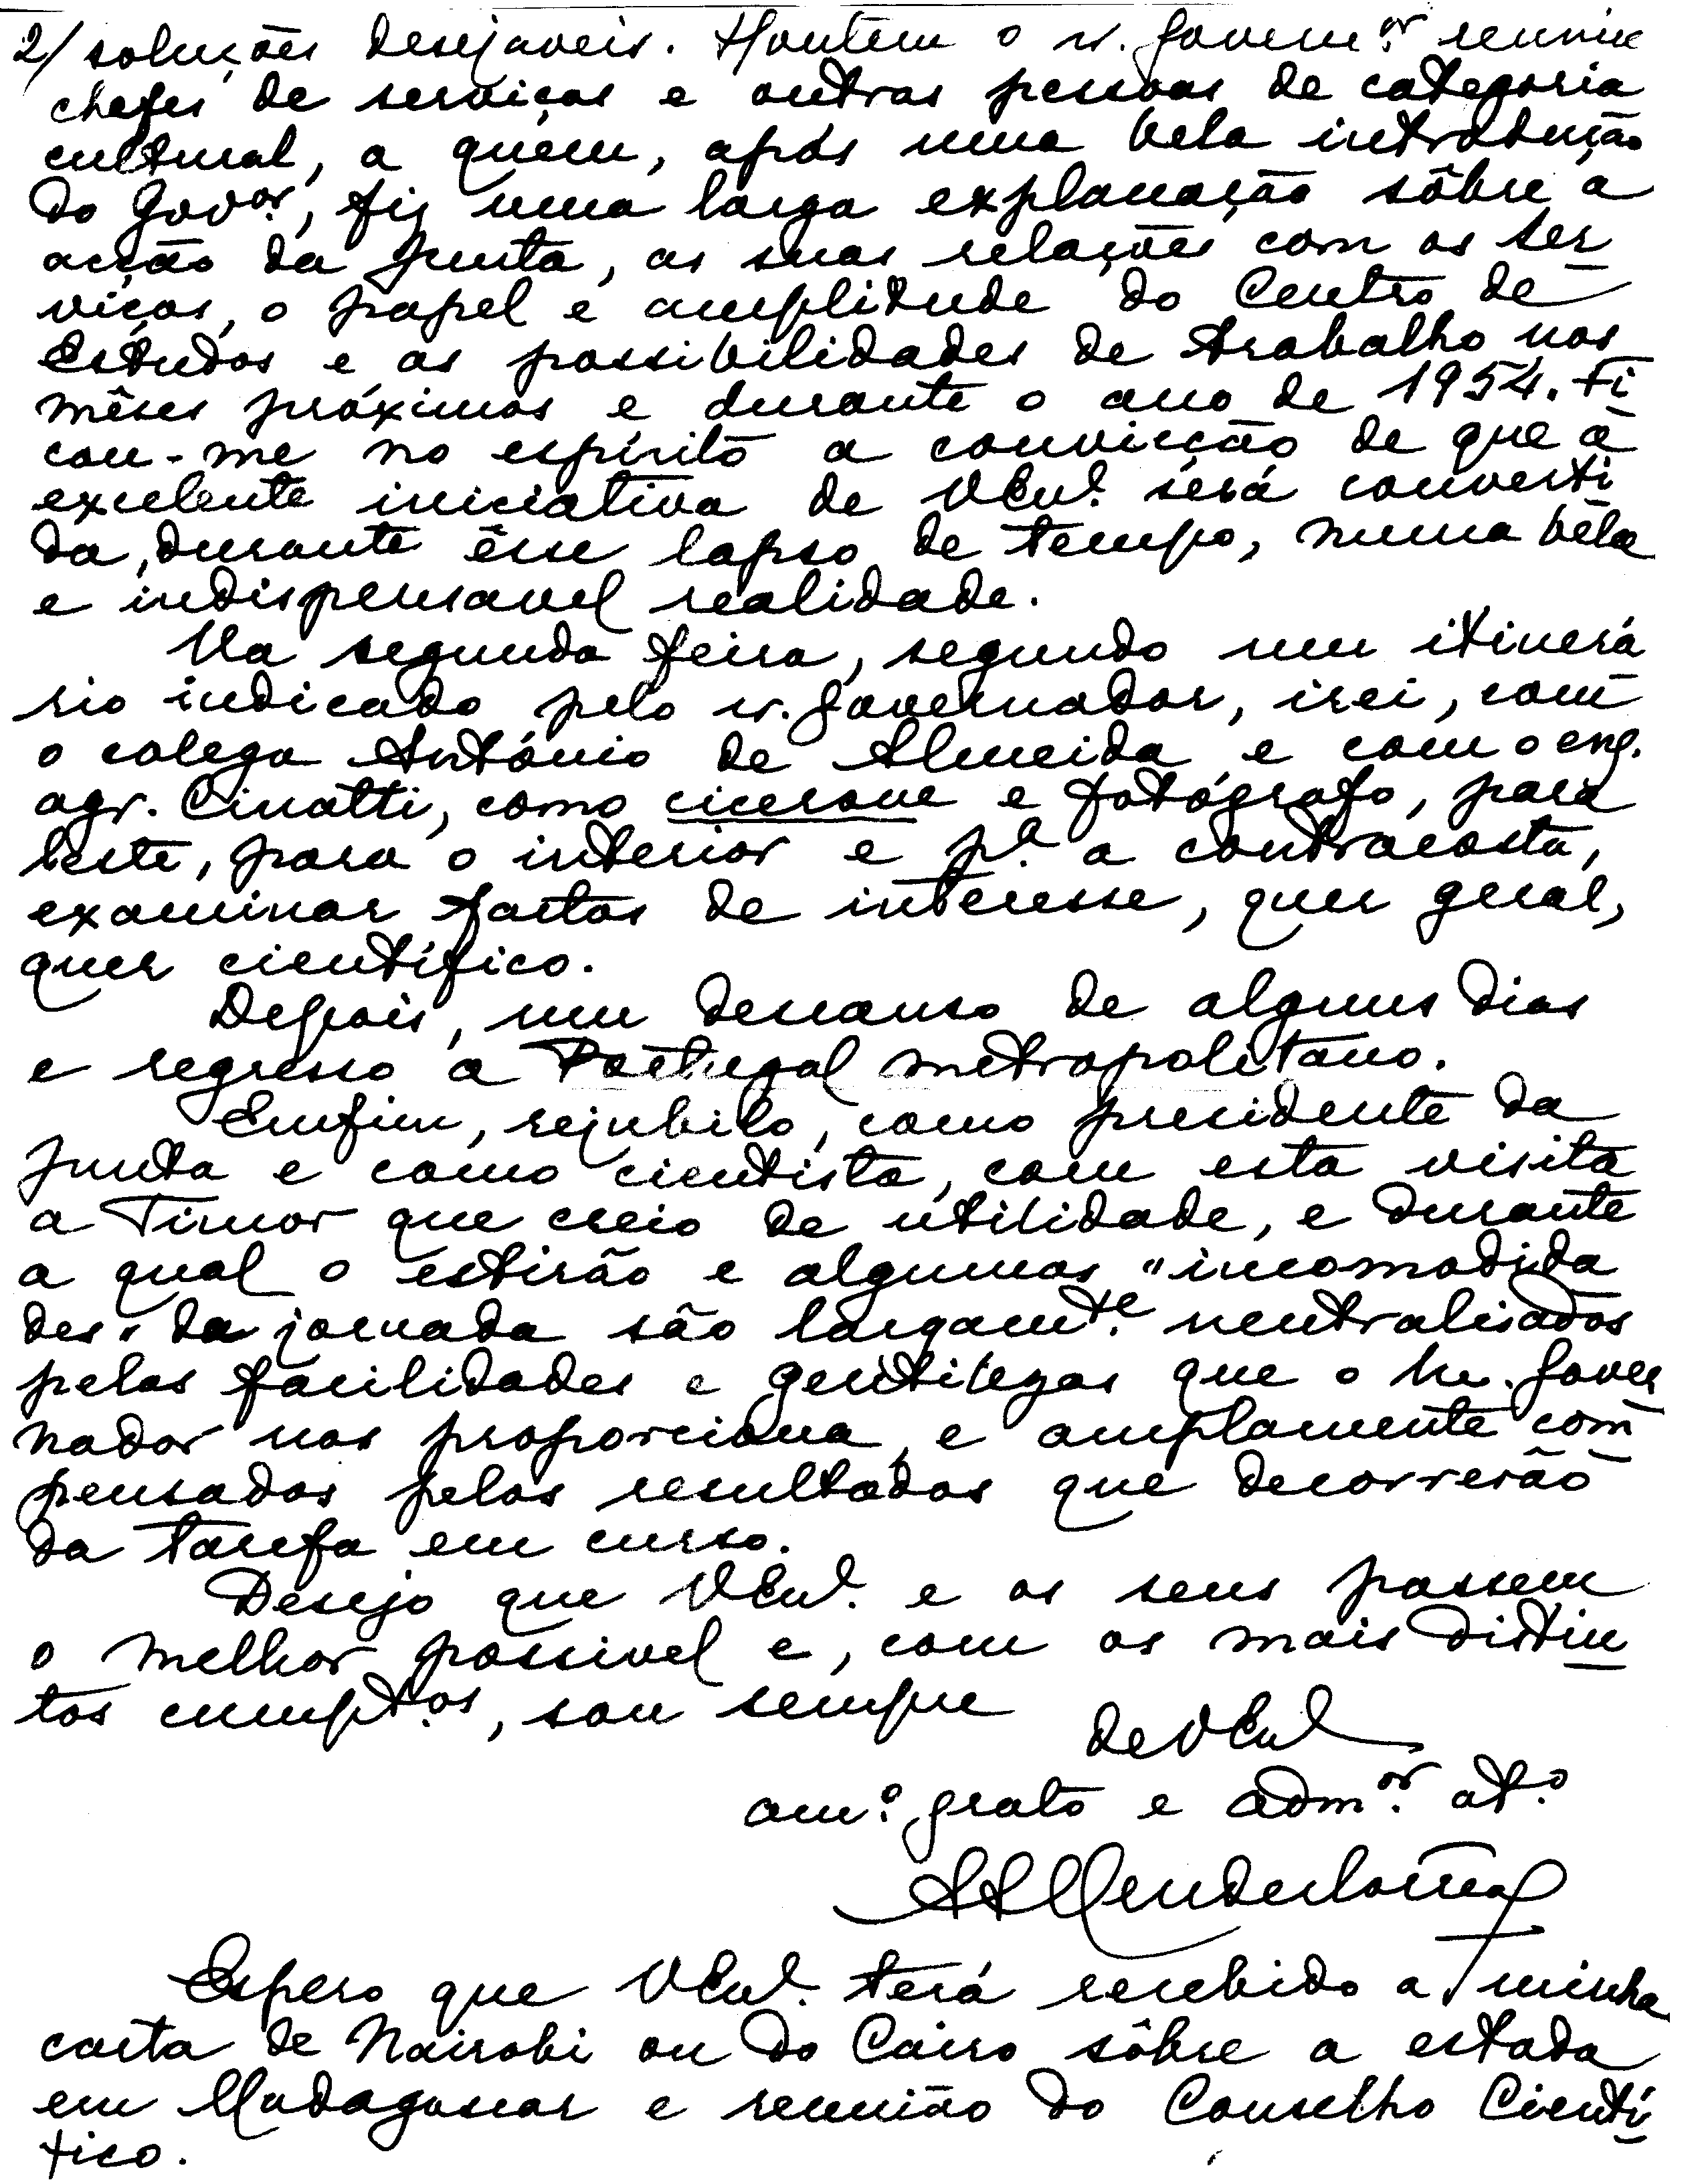 2/ soluções desejaveis. Hontem o sr. Govern.or reuniu
chefes de serviços e outras pessoas de categoria
cultural, a quem, após uma bela introdução
do Gov.or, fiz uma larga explanação sôbre a
acção da Junta, as suas relações com os ser
viços, o papel e amplitude do Centro de
Estudos e as possibilidades de trabalho nos
mêses próximos e durante o ano de 1954. Fi
cou-me no espírito a convicção de que a
excelente iniciativa de VExª. será converti
da, durante êsse lapso de tempo, numa bela
e indispensavel realidade.
Na segunda feira, segundo um itinerá
rio indicado pelo sr. Governador, irei, com
o colega António de Almeida e com o eng.
agr. Cinatti, como cicerone e fotógrafo, para
leste, para o interior e pª. a contracosta,
examinar factos de interesse, quer geral,
quer científico.
Depois, um descanso de alguns dias
e regresso a Portugal metropolitano.
Emfim, rejubilo, como presidente da
Junta e como cientista, com esta visita
a Timor que creio de utilidade, e durante
a qual o estirão e algumas "incomodida
des" da jornada são largam.te neutralisados
pelas facilidades e gentilezas que o sr. Gover
nador nos proporciona, e amplamente com
pensados pelos resultados que decorrerão
da tarefa em curso.
Desejo que VExª. e os seus passem
o melhor possivel e, com os mais distin
tos cumpt.os, sou sempre
de VExª
am.º grato e adm.or at.º
AAMendesCorrêa
Espero que VExª. terá recebido a minha
carta de Nairobi ou do Cairo sôbre a estada
em Madagascar e reunião do Conselho Cientí
fico.